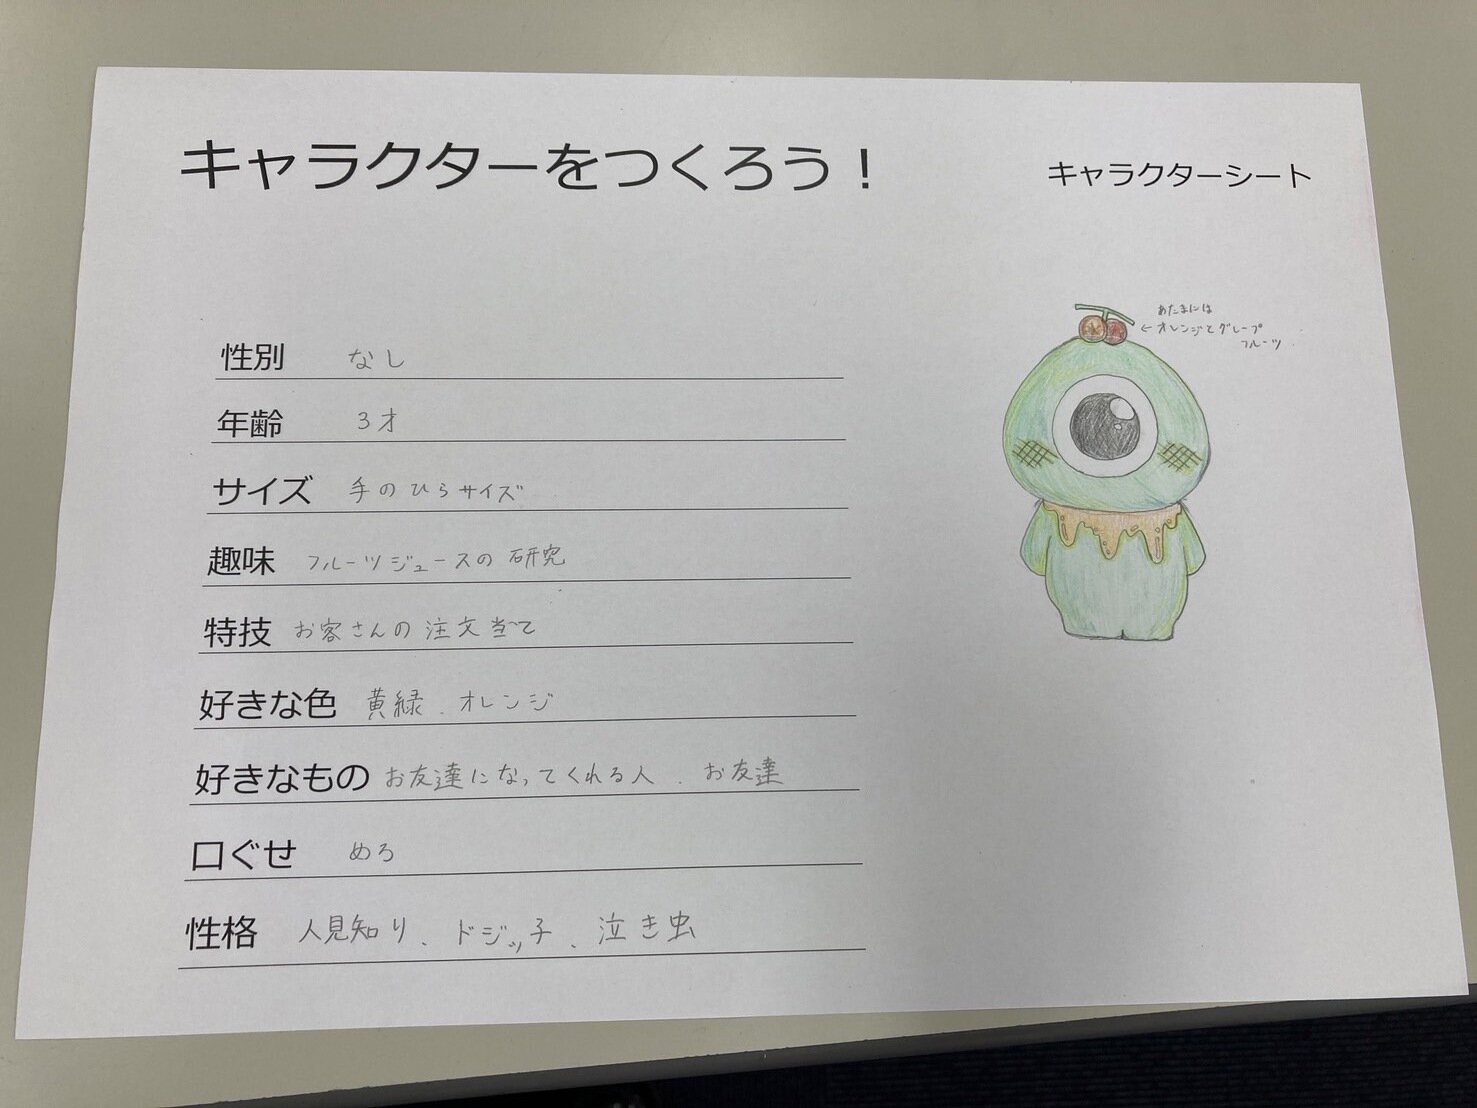 キャラクターをつくろう！
キャラクターシート
性別 なし
年齢 3才
サイズ 手のひらサイズ
趣味 フルーツジュースの研究
特技 お客さんの注文当て
好きな色 黄緑、オレンジ
好きなもの お友達になってくれる人、お友達
口ぐせ めろ
性格 人見知り、ドジッ子、泣き虫
あたまには
←オレンジとグレープ
フルーツ